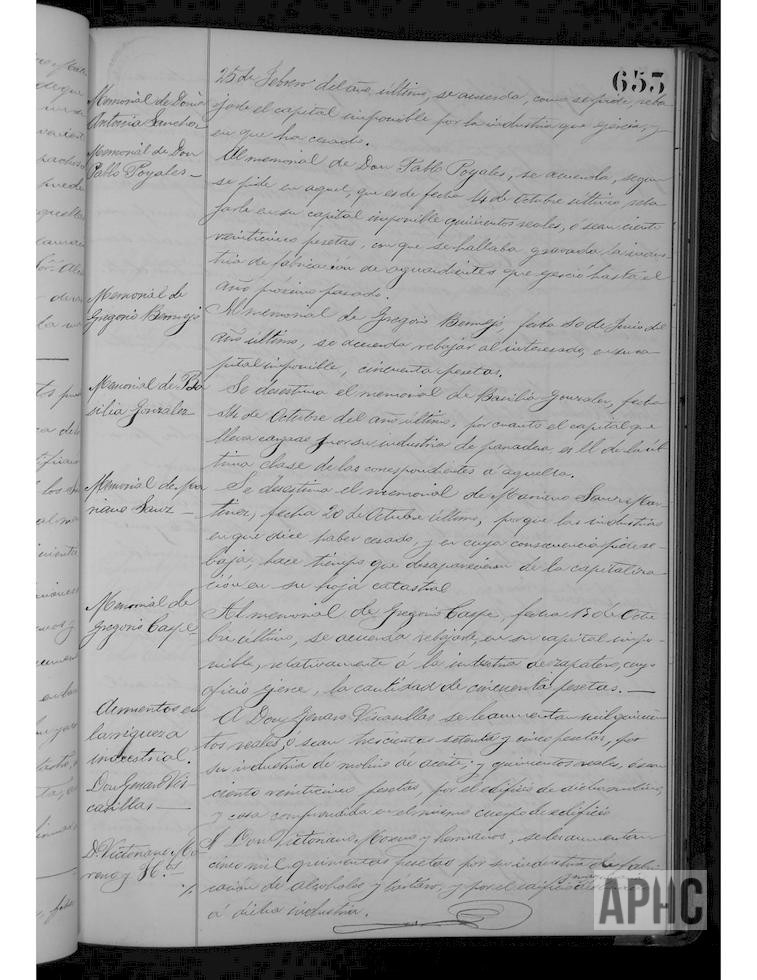 655
25 de Febrero del año último, se acuerda, como se pide, reba
Memorial de Doña
jarle el capital imponible por la industria que ejercía, y
Antonia Sancho
en que ha cesado.
Memorial de Don
Pablo Poyales—
Al memorial de Don Pablo Poyales, se acuerda, segun
se pide en aquel, que es de fecha 14 de Octubre último, reba
jarle en su capital imponible quinientos reales, ó sean ciento
veinticinco pesetas, con que se hallaba gravada la indus
tria de fabricacion de aguardientes que ejerció hasta el
año próximo pasado.
Memorial de
Gregorio Bermejo
Al memorial de Gregorio Bermejo, fecha 10 de Junio del
año último, se acuerda rebajar al interesado, en su ca
pital imponible, cincuenta pesetas.
Memorial de Ba
silia Gonzalez
Se desestima el memorial de Basilia Gonzalez, fecha
14 de Octubre del año último, por cuanto el capital que
lleva cargado por su industria de panadera, es el de la úl
tima clase de las correspondientes á aquella.
Memorial de Ma
riano Sanz—
Se desestima el memorial de Mariano Sanz Mar
tinez, fecha 20 de Octubre último, porque las industrias
en que dice haber cesado, y en cuya consecuencia pide re
baja, hace tiempo que desaparecieron de la capitaliza
ción en su hoja catastral
Memorial de
Gregorio Caspe—
Al memorial de Gregorio Caspe, fecha 15 de Octu
bre último, se acuerda rebajarle, en su capital impo
nible, relativamente á la industria de zapatero, cuyo
oficio ejerce, la cantidad de cincuenta pesetas.—
Aumentos en
la riqueza
industrial.
Don Genaro Vis
casillas—
A Don Genaro Viscasillas se le aumentan mil quinien
tos reales, ó sean trescientas setenta y cinco pesetas, por
su industria de molino de aceite; y quinientos reales, ó sean
ciento veinticinco pesetas, por el edificio de dicho molino,
y casa comprendida en el mismo cuerpo de edificio
D. Victoriano Mo
reno y H.os
A Don Victoriano Moreno y hermanos, se les aumentan
cinco mil quinientas pesetas por su industria de fabri
cación de alcoholes y tártaro, y por el edificio destinado
á dicha industria.
APHC